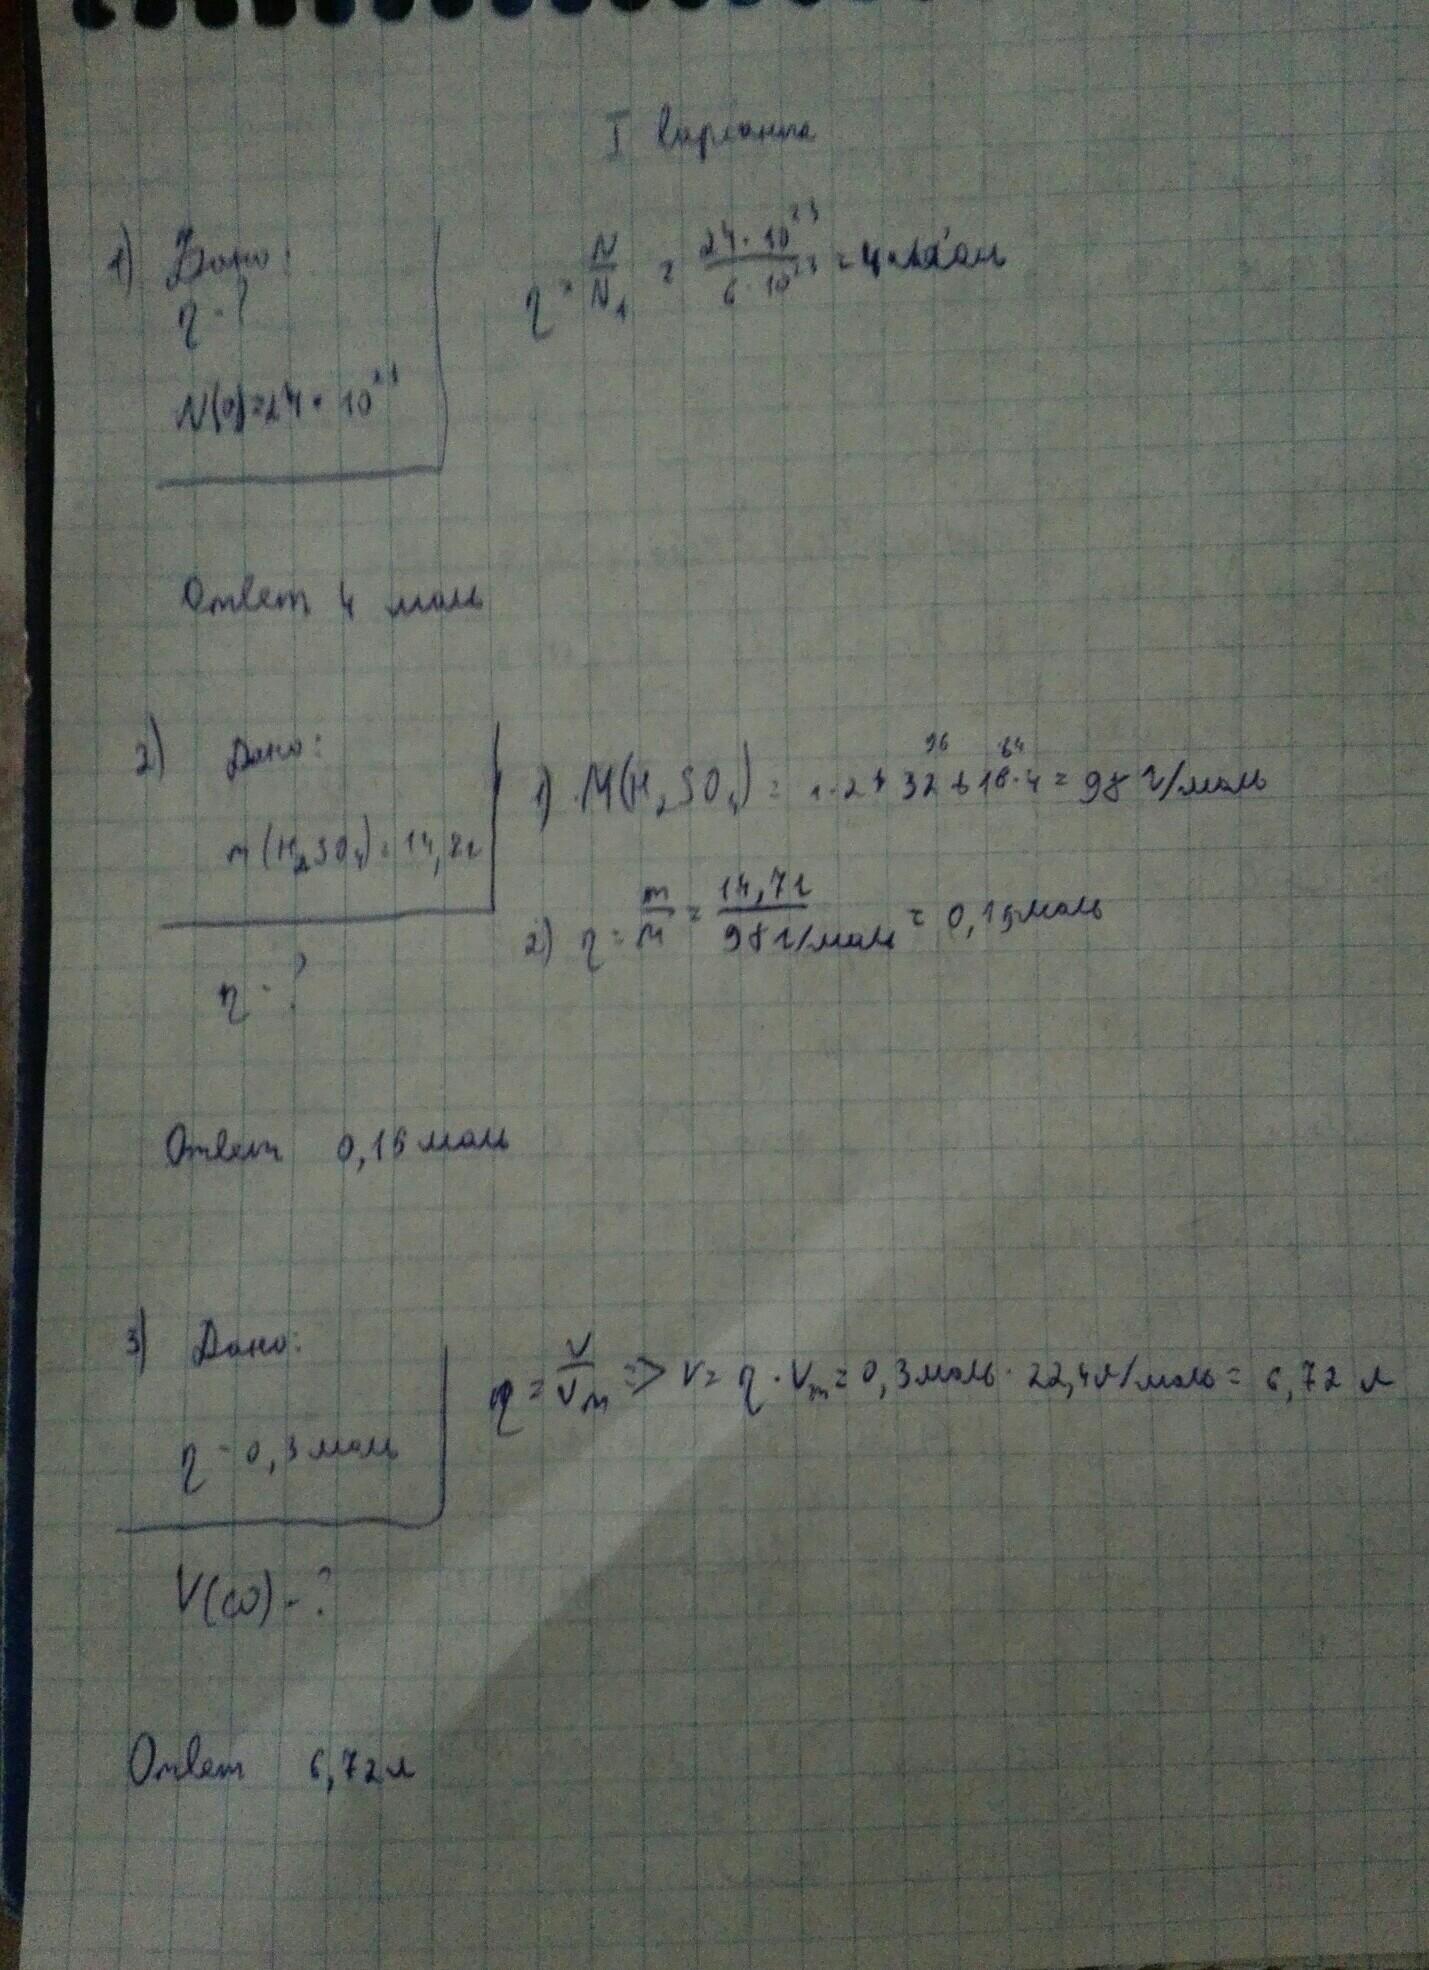 I вариант
1) Дано:
η - ?
N(O)=24 · 10²³
η = N/N₁ = 24 · 10²³ / 6 · 10²³ = 4 моль
Ответ 4 моль
2) Дано:
m(H₂SO₄) = 14,7г
η - ?
96 64
1) M(H₂SO₄) = 1·2+32+16·4 = 98 г/моль
2) η = m/M = 14,7г / 98г/моль = 0,15моль
Ответ 0,15 моль
3) Дано:
η = 0,3 моль
V(CO) - ?
η = V/Vm => V = η · Vm = 0,3моль · 22,4л/моль = 6,72 л
Ответ 6,72л